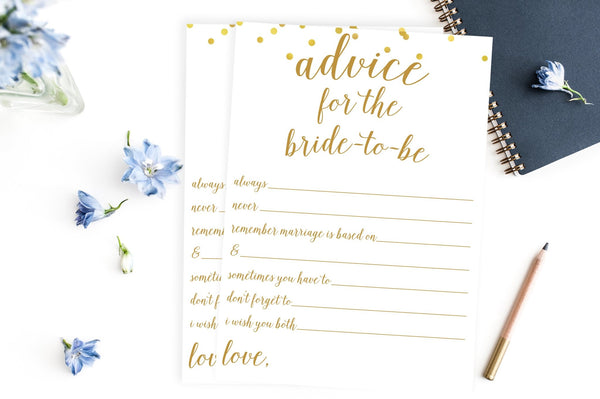 advice
for the
bride-to-be
always
never
remember marriage is based on
&
sometimes you have to
don't forget to
i wish you both
love,
always
never
remember
&
sometim
don't f
i wish
lov